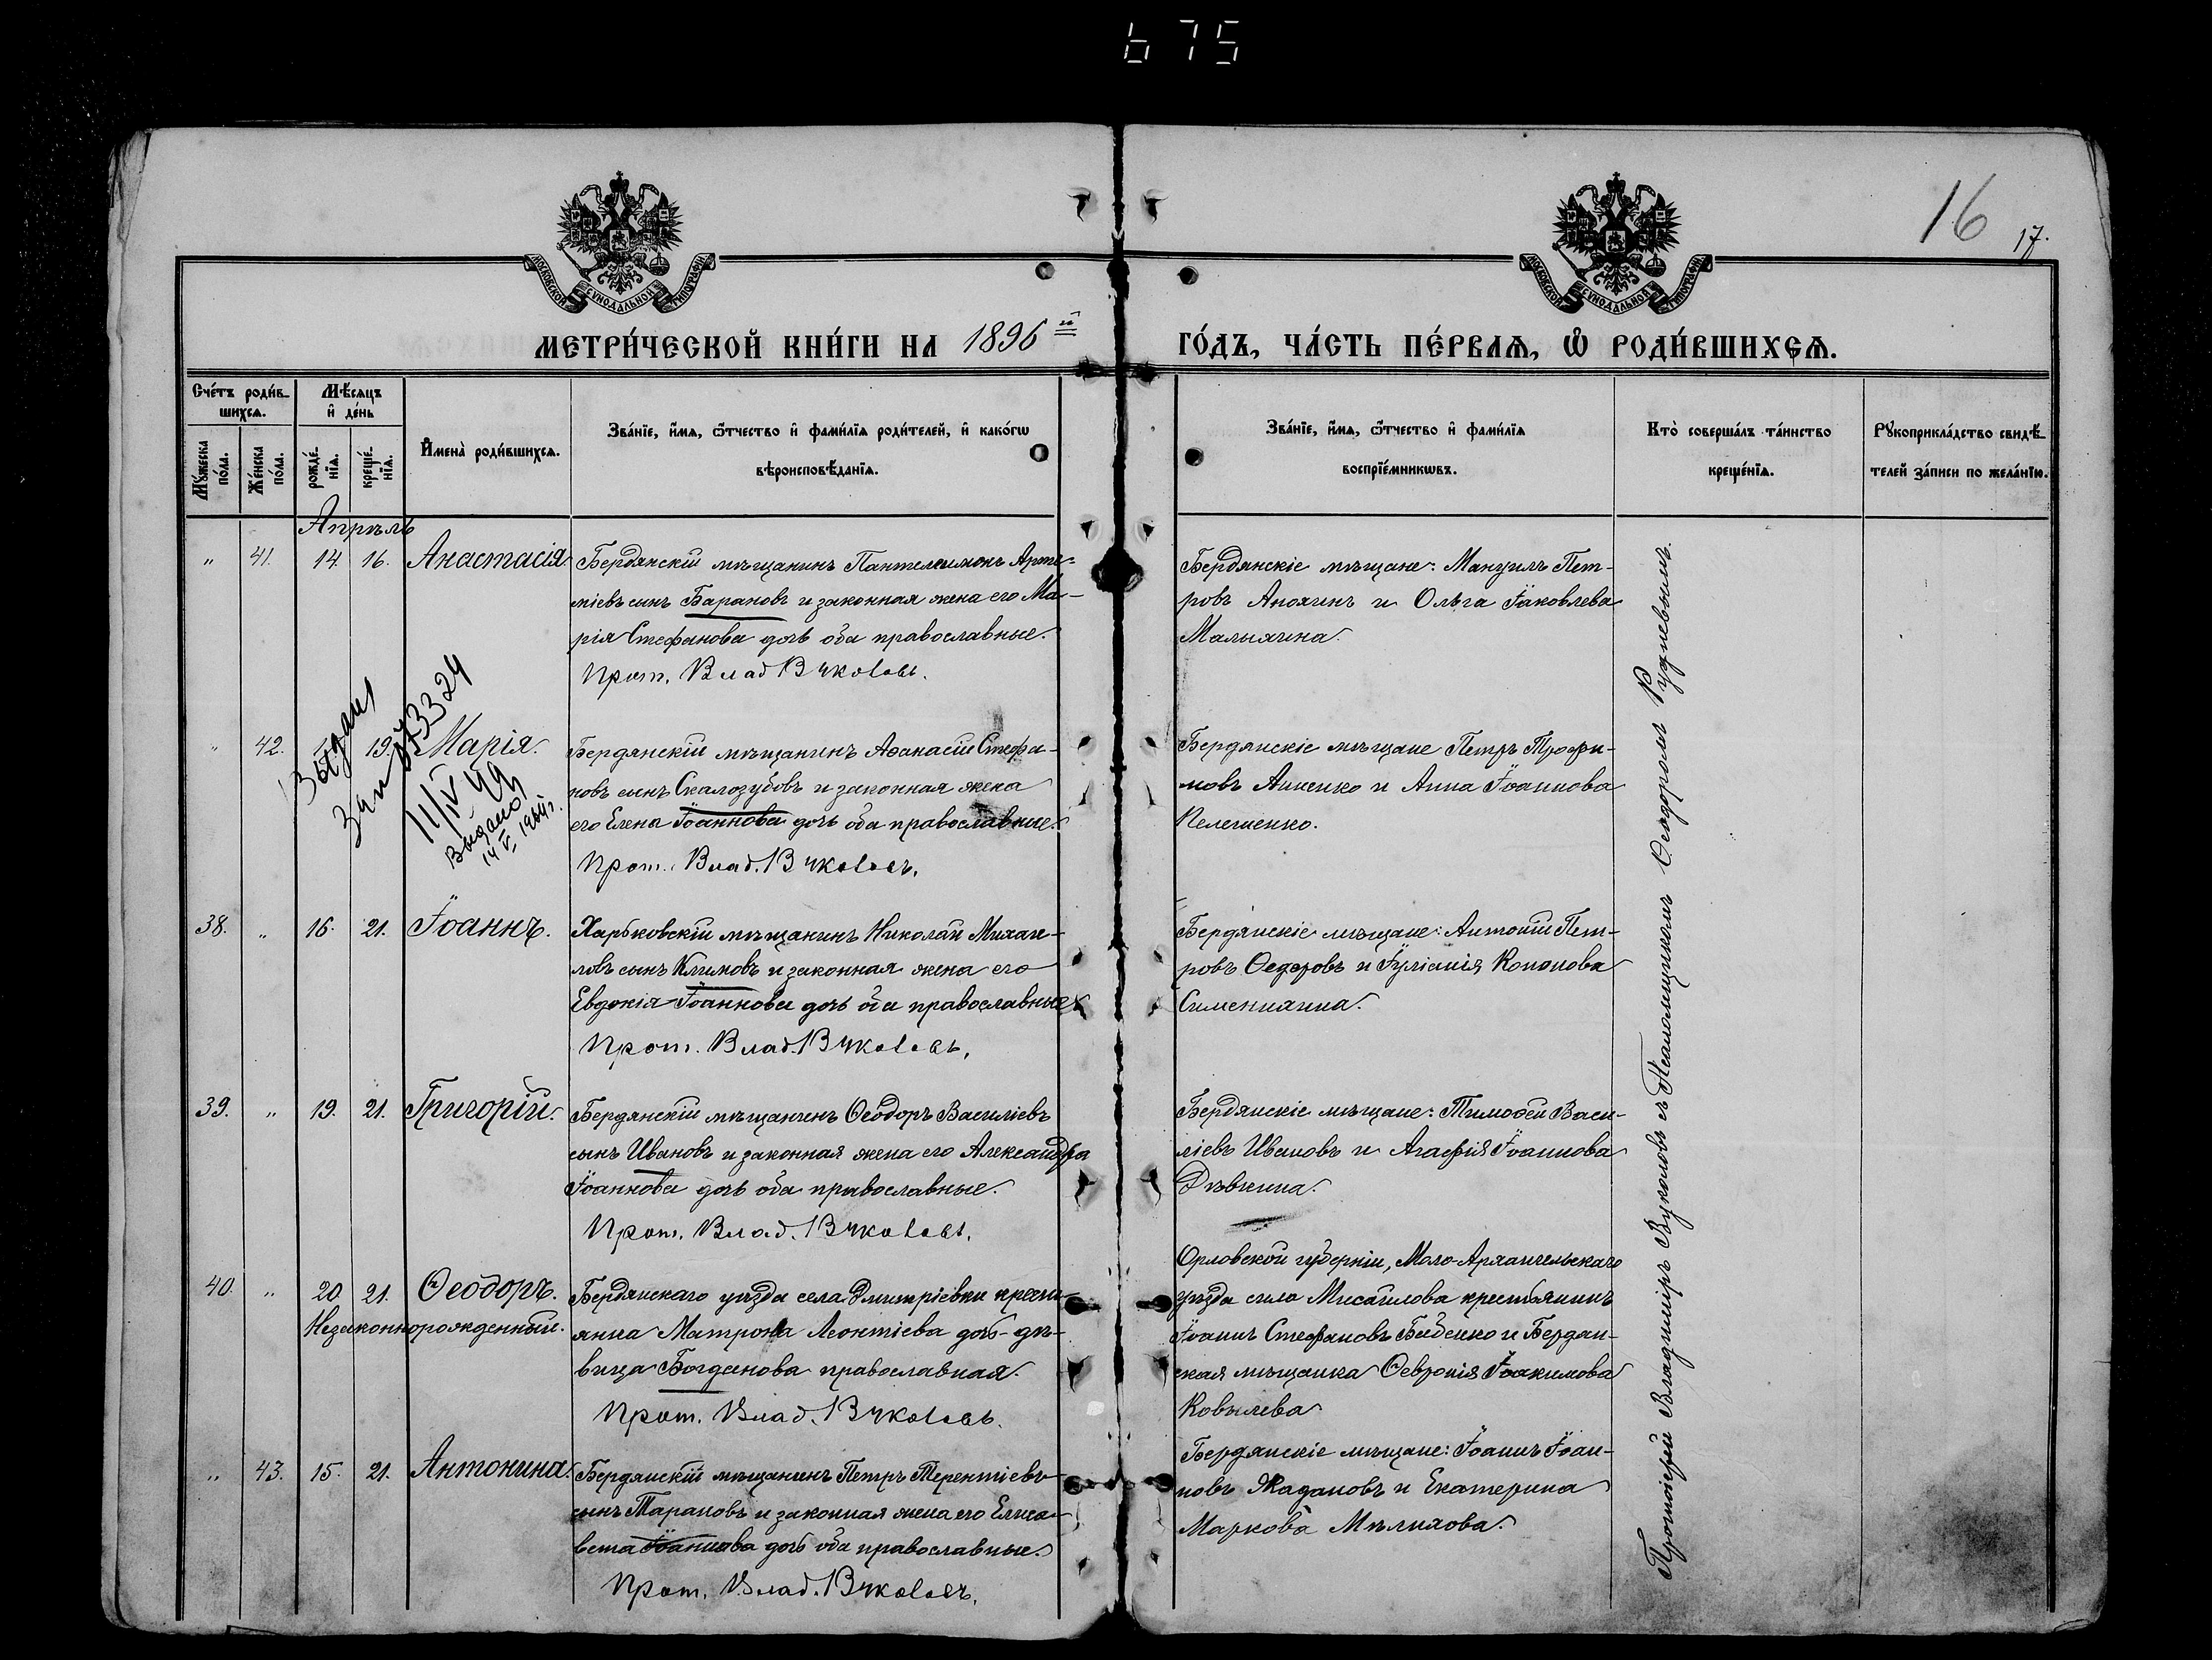 675
16 17.
МОСКОВСКОЙ СѴНОДАЛЬНОЙ ТИПОГРАФІИ
МОСКОВСКОЙ СѴНОДАЛЬНОЙ ТИПОГРАФІИ
МЕТРИ́ЧЕСКОЙ КНИ́ГИ НА 1896й ГО́ДЪ, ЧА́СТЬ ПЕ́РВАѦ, Ѡ҆ РОДИ́ВШИХСѦ.
Сче́тъ роди́в-
шихсѧ.
Мꙋ́жеска по́ла.
Же́нска по́ла.
Мѣ́сѧцъ
и҆ де́нь
рожде́-
нїѧ.
креще́-
нїѧ.
И҆мена̀ роди́вшихсѧ.
Зва́нїе, и҆́мѧ, ѻ҆́тчество и҆ фами́лїѧ роди́телей, и҆ како́гѡ
вѣроисповѣ́данїѧ.
Зва́нїе, и҆́мѧ, ѻ҆́тчество и҆ фами́лїѧ
воспрїе́мникѡвъ.
Кто̀ соверша́лъ та́инство
креще́нїѧ.
Рꙋкоприкла́дство свидѣ́-
телей за́писи по жела́нїю.
Апрѣль
" 41. 14. 16. Анастасія. Бердянскій мѣщанинъ Пантелеимонъ Арте-
міевъ сынъ Барановъ и законная жена его Ма-
рія Стефанова дочь оба православные.
Прот. Влад Вуколовъ.
Бердянскіе мѣщане: Мануилъ Пет-
ровъ Анохинъ и Ольга Іаковлева
" 42. 19. Марія. Бердянскій мѣщанинъ Аѳанасій Стефа-
новъ сынъ Скалозубовъ и законная жена
его Елена Іоаннова дочь оба православные.
Прот. Влад. Вуколовъ.
Выдан
11/V 49
Выдано
14 V 1964г.
Бердянскіе мѣщане Петръ Трофи-
мовъ Анненко и Анна Іоаннова
38. " 16. 21. Іоаннъ. Харьковскій мѣщанинъ Николай Михаи-
ловъ сынъ Климовъ и законная жена его
Евдокія Іоаннова дочь оба православные
Прот. Влад. Вуколовъ.
Бердянскіе мѣщане: Антоній Пет-
ровъ Ѳедоровъ и Іуліанія Кононова
39. " 19. 21. Григорій. Бердянскій мѣщанинъ Ѳеодоръ Василіевъ
сынъ Ивановъ и законная жена его Александра
Іоаннова дочь оба православные.
Прот. Влад. Вуколовъ.
Бердянскіе мѣщане: Тимоѳей Васи-
ліевъ Ивановъ и Агафія Іоаннова
Дѣвкина.
40. " 20. 21. Ѳеодоръ. Бердянскаго уѣзда села Дмитріевки кресть-
Незаконнорожденный. янка Матрона Леонтіева дочь-дѣ-
вица Богданова православная.
Прот. Влад. Вуколовъ.
Орловской губерніи, Мало-Архангельскаго
уѣзда села Мисайлова крестьянинъ
Іоаннъ Стефановъ Бабенко и Бердян-
ская мѣщанка Ѳевронія Іоакимова
Ковылева
" 43. 15. 21. Антонина. Бердянскій мѣщанинъ Петръ Терентіевъ
сынъ Тарановъ и законная жена его Елиса-
вета Іоаннова дочь оба православные.
Прот. Влад. Вуколовъ.
Бердянскіе мѣщане: Іоаннъ Іоан-
новъ Жадановъ и Екатерина
Маркова Мѣлихова.
Протоіерей Владиміръ Вуколовъ съ Псаломщикомъ Ѳеодоромъ Рудневымъ.